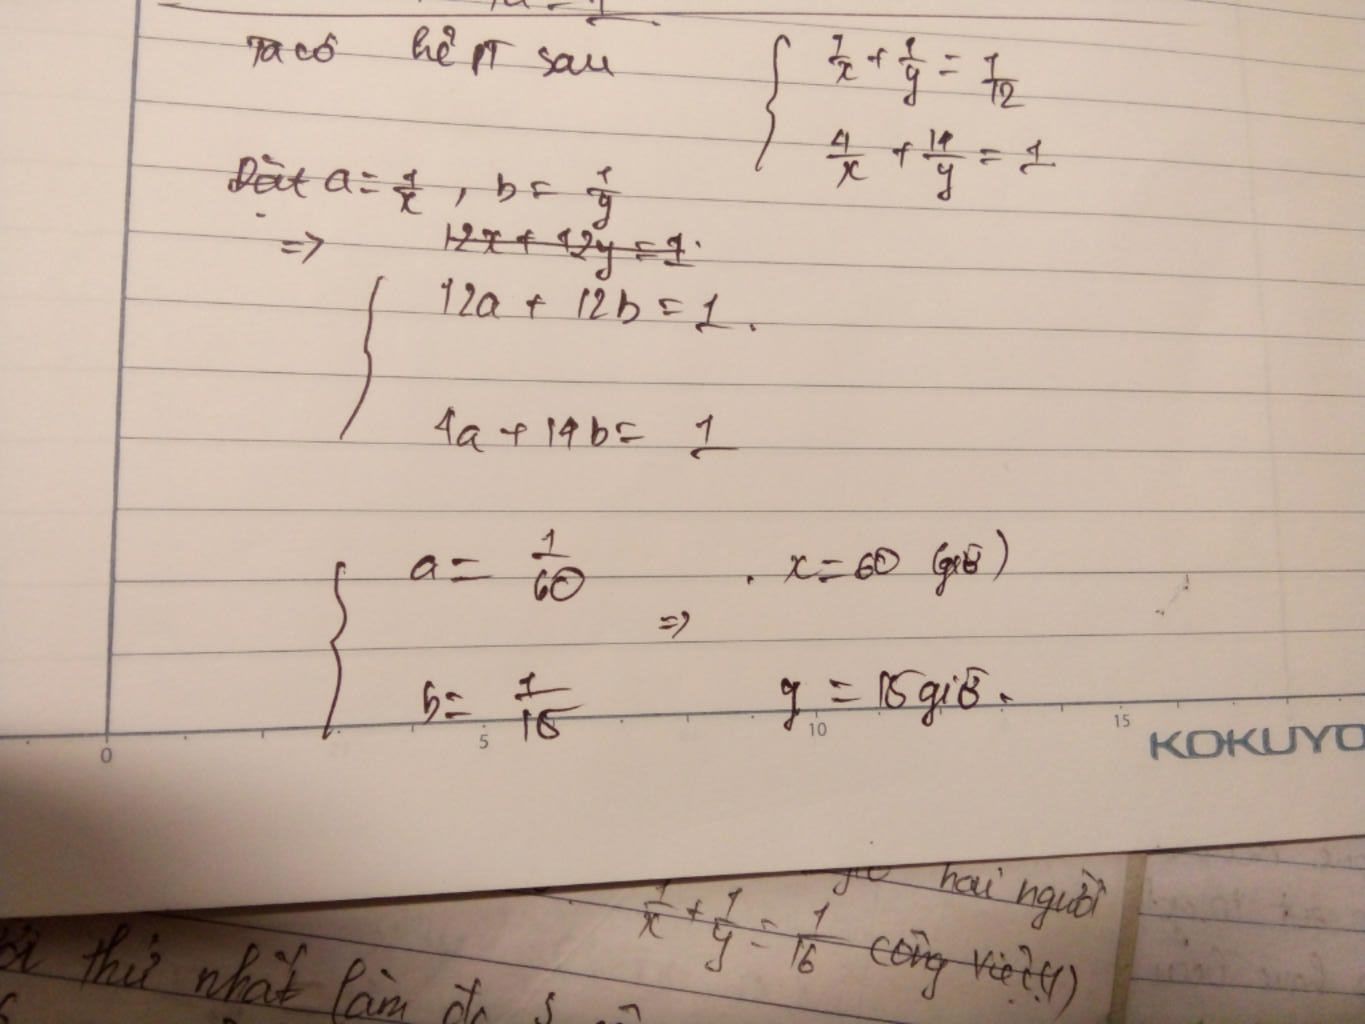 Ta có hệ PT sau
1/x + 1/y = 1/12
4/x + 14/y = 1
Đặt a = 1/x , b = 1/y
=> 12x + 12y = 1.
12a + 12b = 1.
4a + 14b = 1
a = 1/60 . x = 60 (giờ)
=>
b = 1/15 y = 15 giờ.
0 5 10 15
KOKUYO
hai người
1/x + 1/y = 1/16 (công việc) (1)
thứ nhất làm